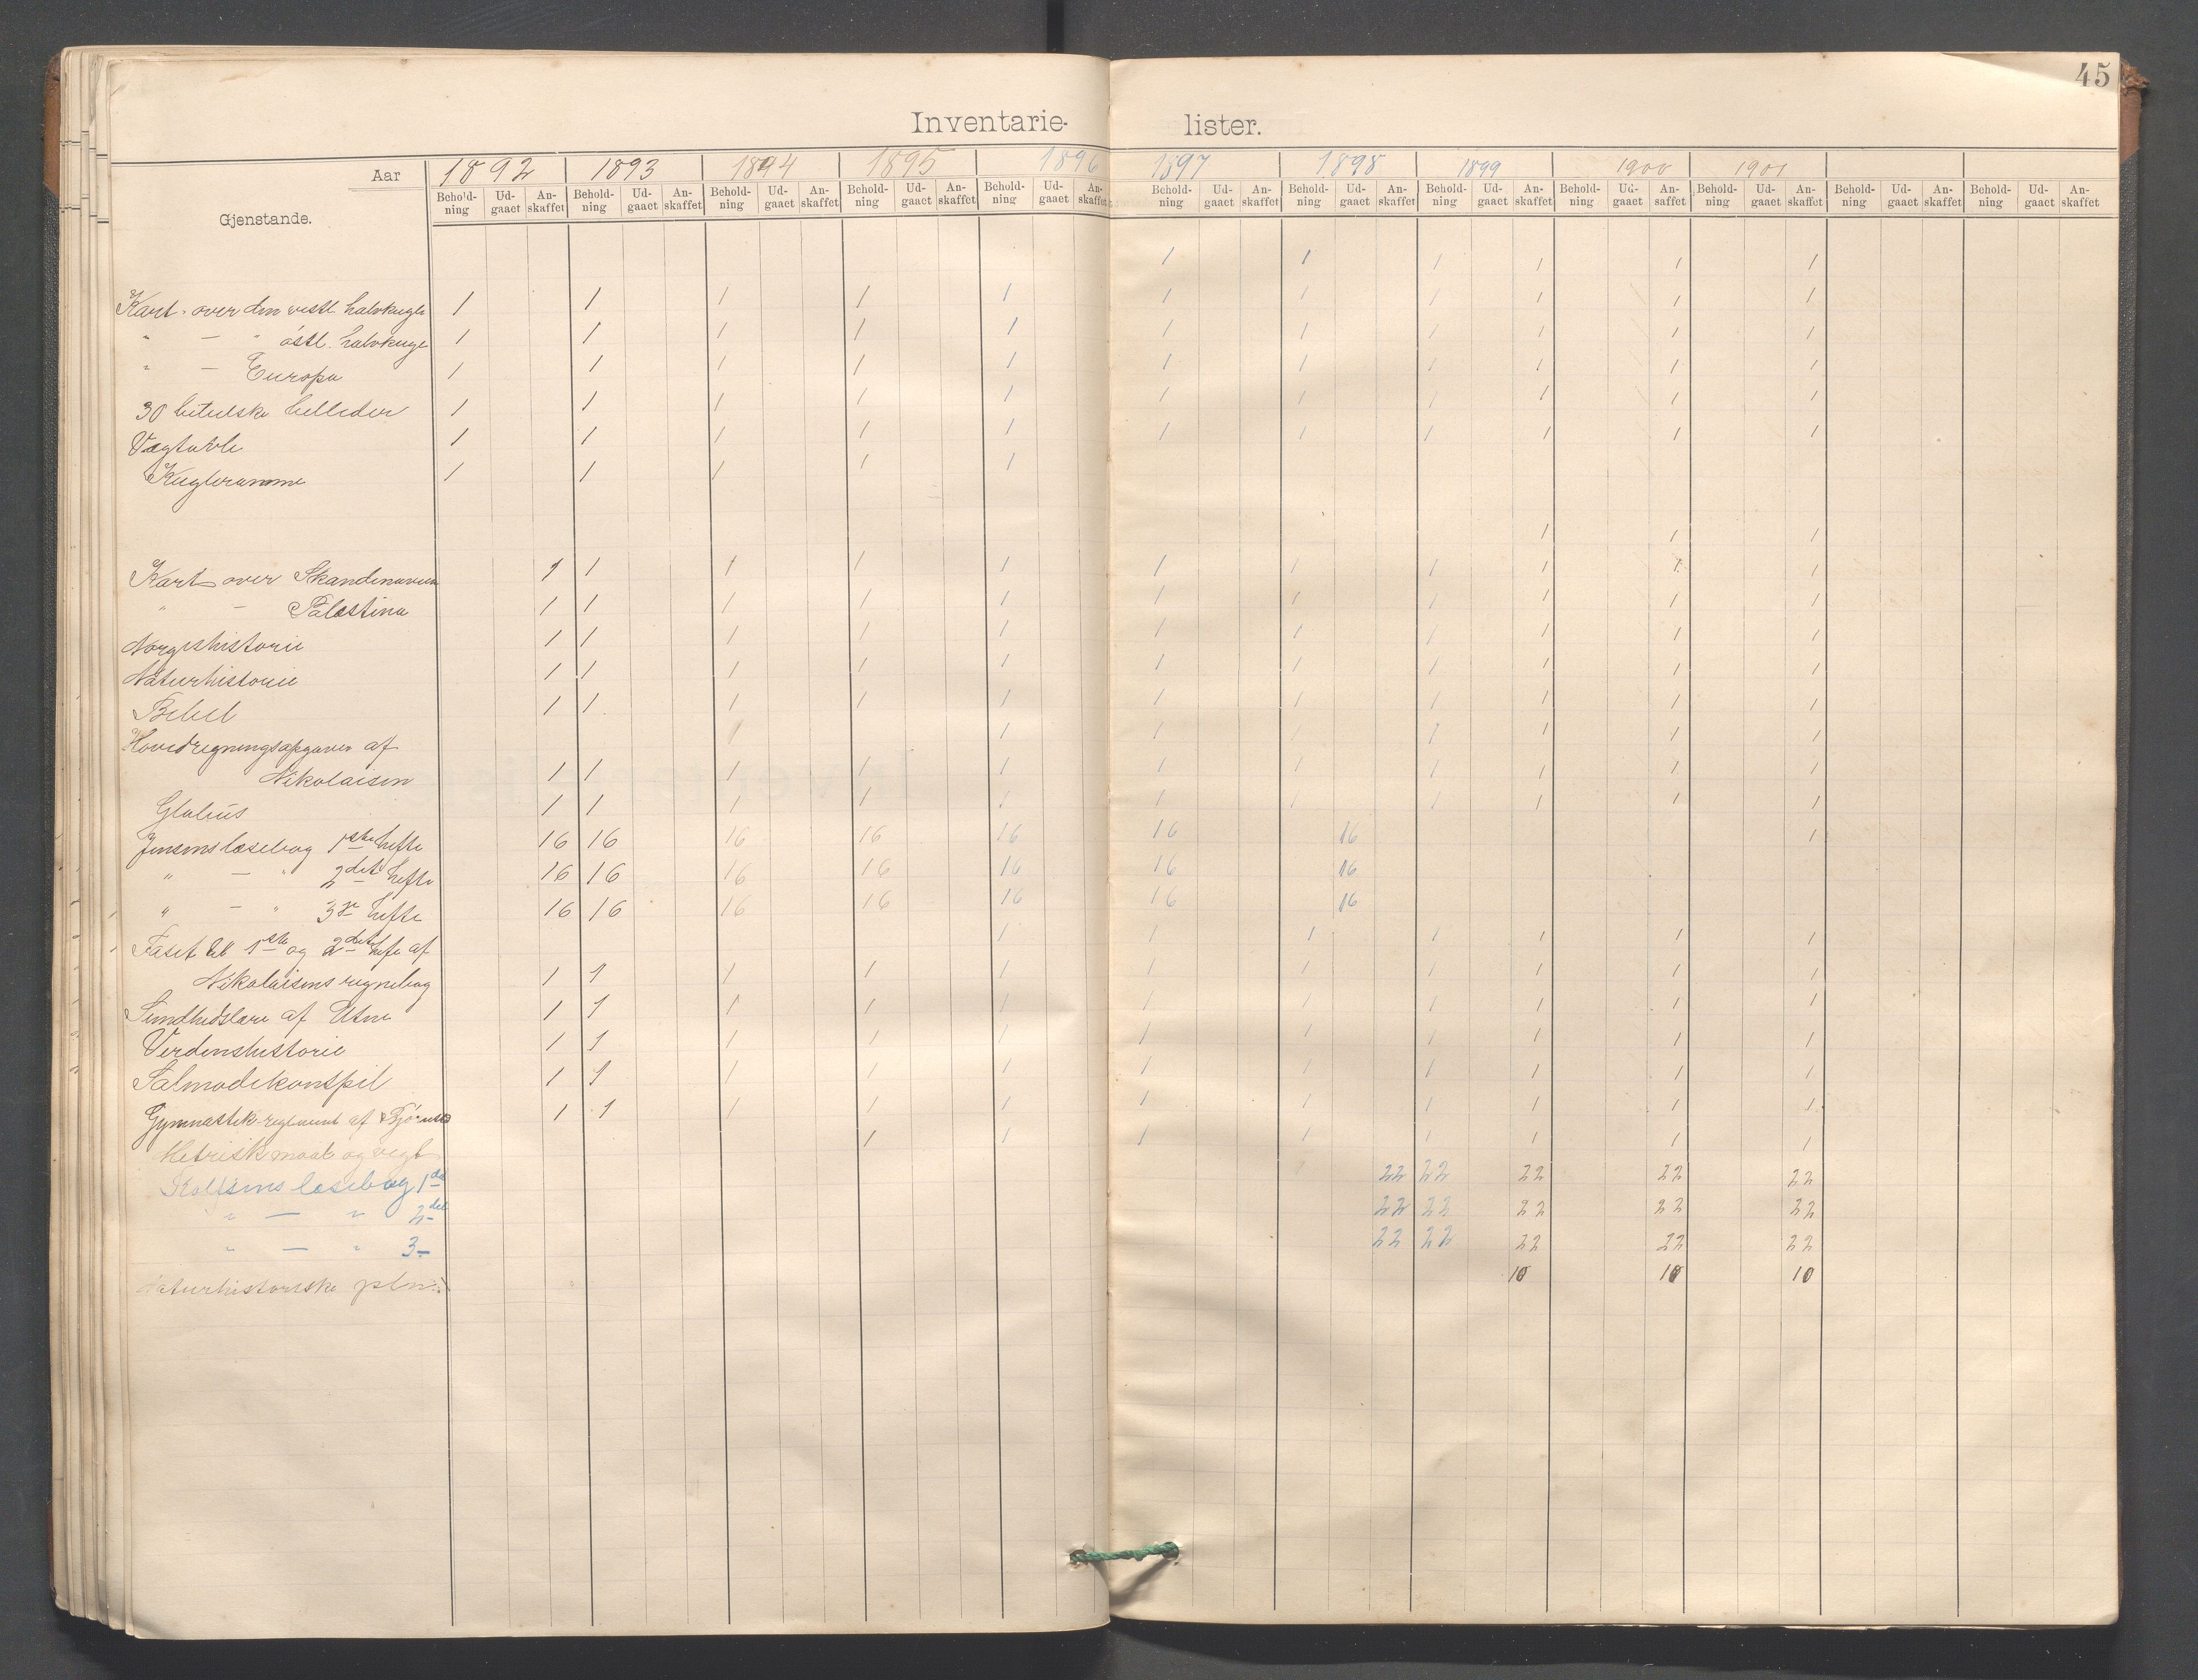 45
Inventarie- lister.
Aar 1892 1893 1894 1895 1896 1897 1898 1899 1900 1901
Gjenstande. Behold-ning Ud-gaaet An-skaffet Behold-ning Ud-gaaet An-skaffet Behold-ning Ud-gaaet An-skaffet Behold-ning Ud-gaaet An-skaffet Behold-ning Ud-gaaet An-skaffet Behold-ning Ud-gaaet An-skaffet Behold-ning Ud-gaaet An-skaffet Behold-ning Ud-gaaet An-skaffet Behold-ning Ud-gaaet An-saffet Behold-ning Ud-gaaet An-skaffet Behold-ning Ud-gaaet An-skaffet Behold-ning Ud-gaaet An-skaffet
Kart over den vestl. halvkugle 1 1 1 1 1 1 1 1 1 1 1
" — " östl. halvkugle 1 1 1 1 1 1 1 1 1 1 1
" — Europa 1 1 1 1 1 1 1 1 1 1 1
30 bibelske billeder 1 1 1 1 1 1 1 1 1 1 1
Vægtavle 1 1 1 1 1 1 1 1 1 1 1
Kugleramme 1 1 1 1 1
Kart over Skandinavien 1 1 1 1 1 1 1 1 1 1 1
" — Palæstina 1 1 1 1 1 1 1 1 1 1 1
Norgeshistorie 1 1 1 1 1 1 1 1 1 1 1
Naturhistorie 1 1 1 1 1 1 1 1 1 1 1
Bibel 1 1 1 1 1 1 1 1 1 1 1
Hovedregningsopgaver af
Nikolaisen 1 1 1 1 1 1 1 1 1 1 1
Globus 1 1 1 1 1 1 1 1 1 1 1
Jensens læsebog 1ste hefte 16 16 16 16 16 16 16
" — " 2det hefte 16 16 16 16 16 16 16
" — " 3je hefte 16 16 16 16 16 16 16
Faset til 1ste og 2det hefte af
Nikolaisens regnebog 1 1 1 1 1 1 1 1 1 1 1
Sundhedslære af Utne 1 1 1 1 1 1 1 1 1 1 1
Verdenshistorie 1 1 1 1 1 1 1 1 1 1 1
Salmodikonspil 1 1 1 1 1 1 1 1 1 1 1
Gymnastik-reglement af 1 1 1 1 1 1 1 1 1 1 1
Metrisk maal og vegt 1 1 1 1 1 1 1 1
Rolfsens læsebog 1 del 22 22 22 22 22
" — " 2 del 22 22 22 22 22
" — " 3 – 22 22 22 22 22
Naturhistoriske 10 10 10